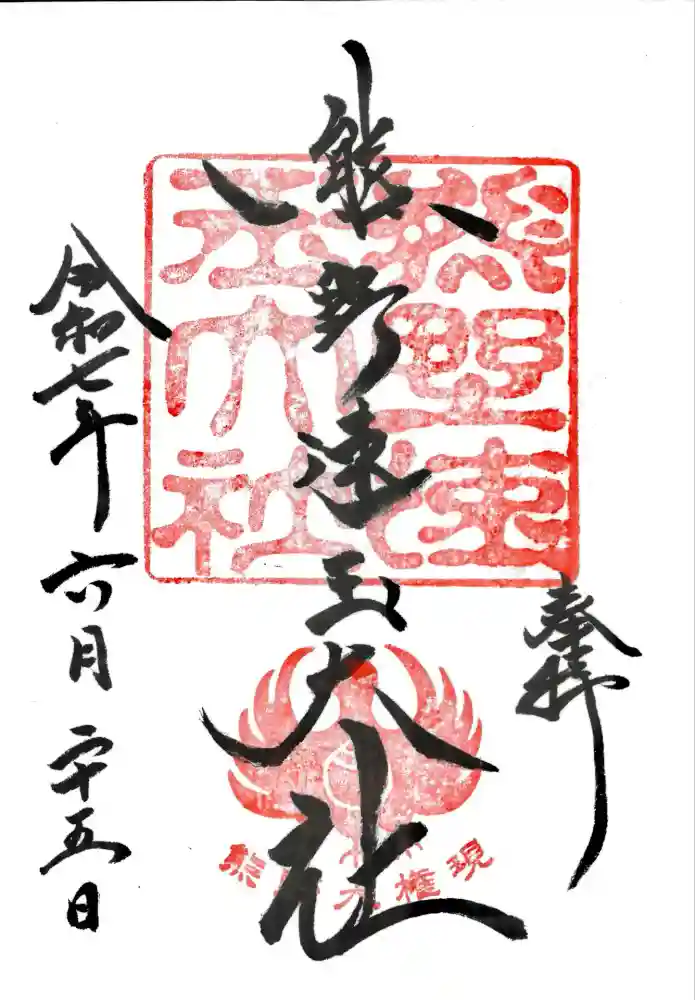 奉拝
熊野速玉大社
熊野速
玉大社
熊野大権現
令和七年六月二十五日